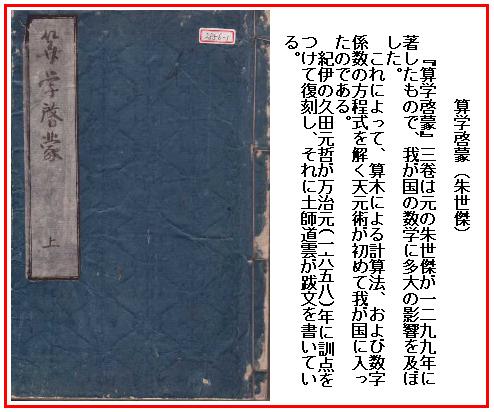 算学啓蒙（朱世傑）
『算学啓蒙』三巻は元の朱世傑が一二九九年に
著したもので、我が国の数学に多大の影響を及ぼ
した。
これによって、算木による計算法、および数字
係数の方程式を解く天元術が初めて我が国に入っ
たのである。
紀伊の久田元哲が万治元(一六五八)年に訓点を
つけて復刻し、それに土師道雲が跋文を書いてい
る。
筭学啓蒙 上